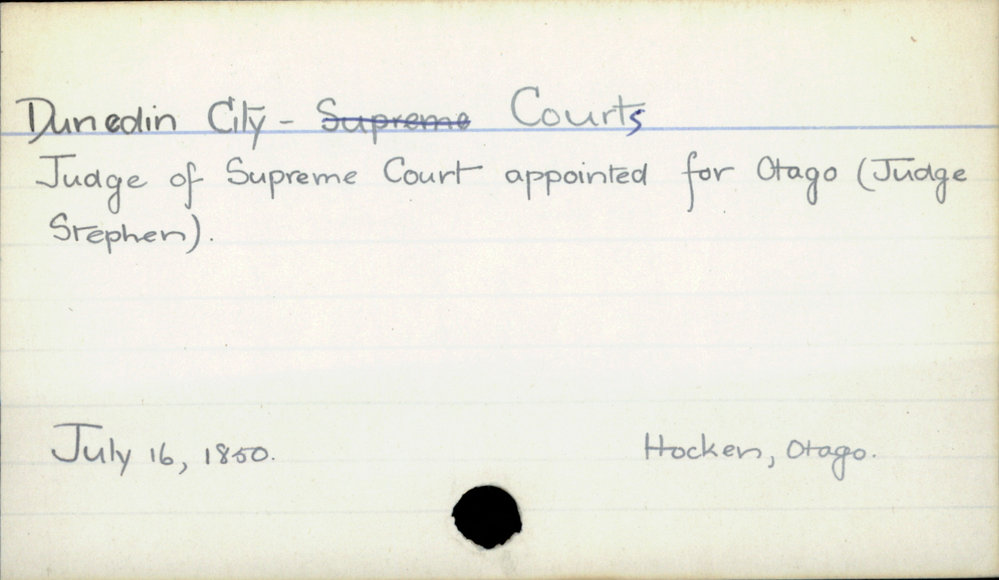 Dunedin City - Supreme Courts
Judge of Supreme Court appointed for Otago (Judge
Stephen).
July 16, 1850.
Hocken, Otago.